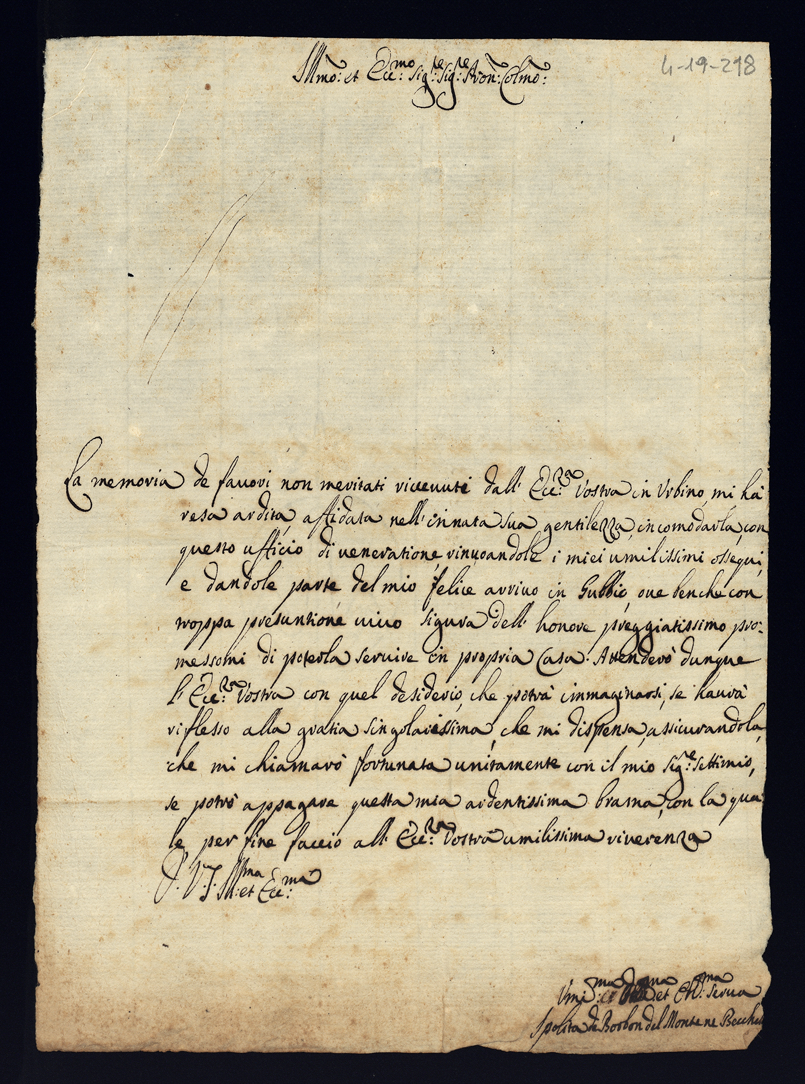 4-19-298
Ill.mo: et Ecc:mo Sig:re Sig:re Pron: Colmo:
La memoria de fauori non meritati riceuuti dall' Ecc:za Vostra in Vrbino, mi hà
resa ardita, affidata nell' innata sua gentilezza, incomodarla, con
questo uffitio di ueneratione rinuoandole i miei umilissimi ossequi,
e dandole parte del mio felice arriuo in Gubbio oue benche con
troppa presuntione uiuo sigura dell' honore preggiatissimo pro-
messomi di poterla seruire in propria Casa. Attenderò dunque
l' Ecc:za Vostra con quel desiderio, che potrà immaginarsi, se haurà
riflesso alla gratia singolarissima, che mi dispensa, assicurandola,
che mi chiamarò fortunata unitamente con il mio Sig:re Settimio,
se potrò appagare questa mia ardentissima brama, con la qua
le per fine faccio all' Ecc:za Vostra umilissima riuerenza
D. V. S. Ill:ma et Ecc:ma
Vmi:ma et Ob:ma Serua
Ipolita di Borbon del Monte ne Becchet